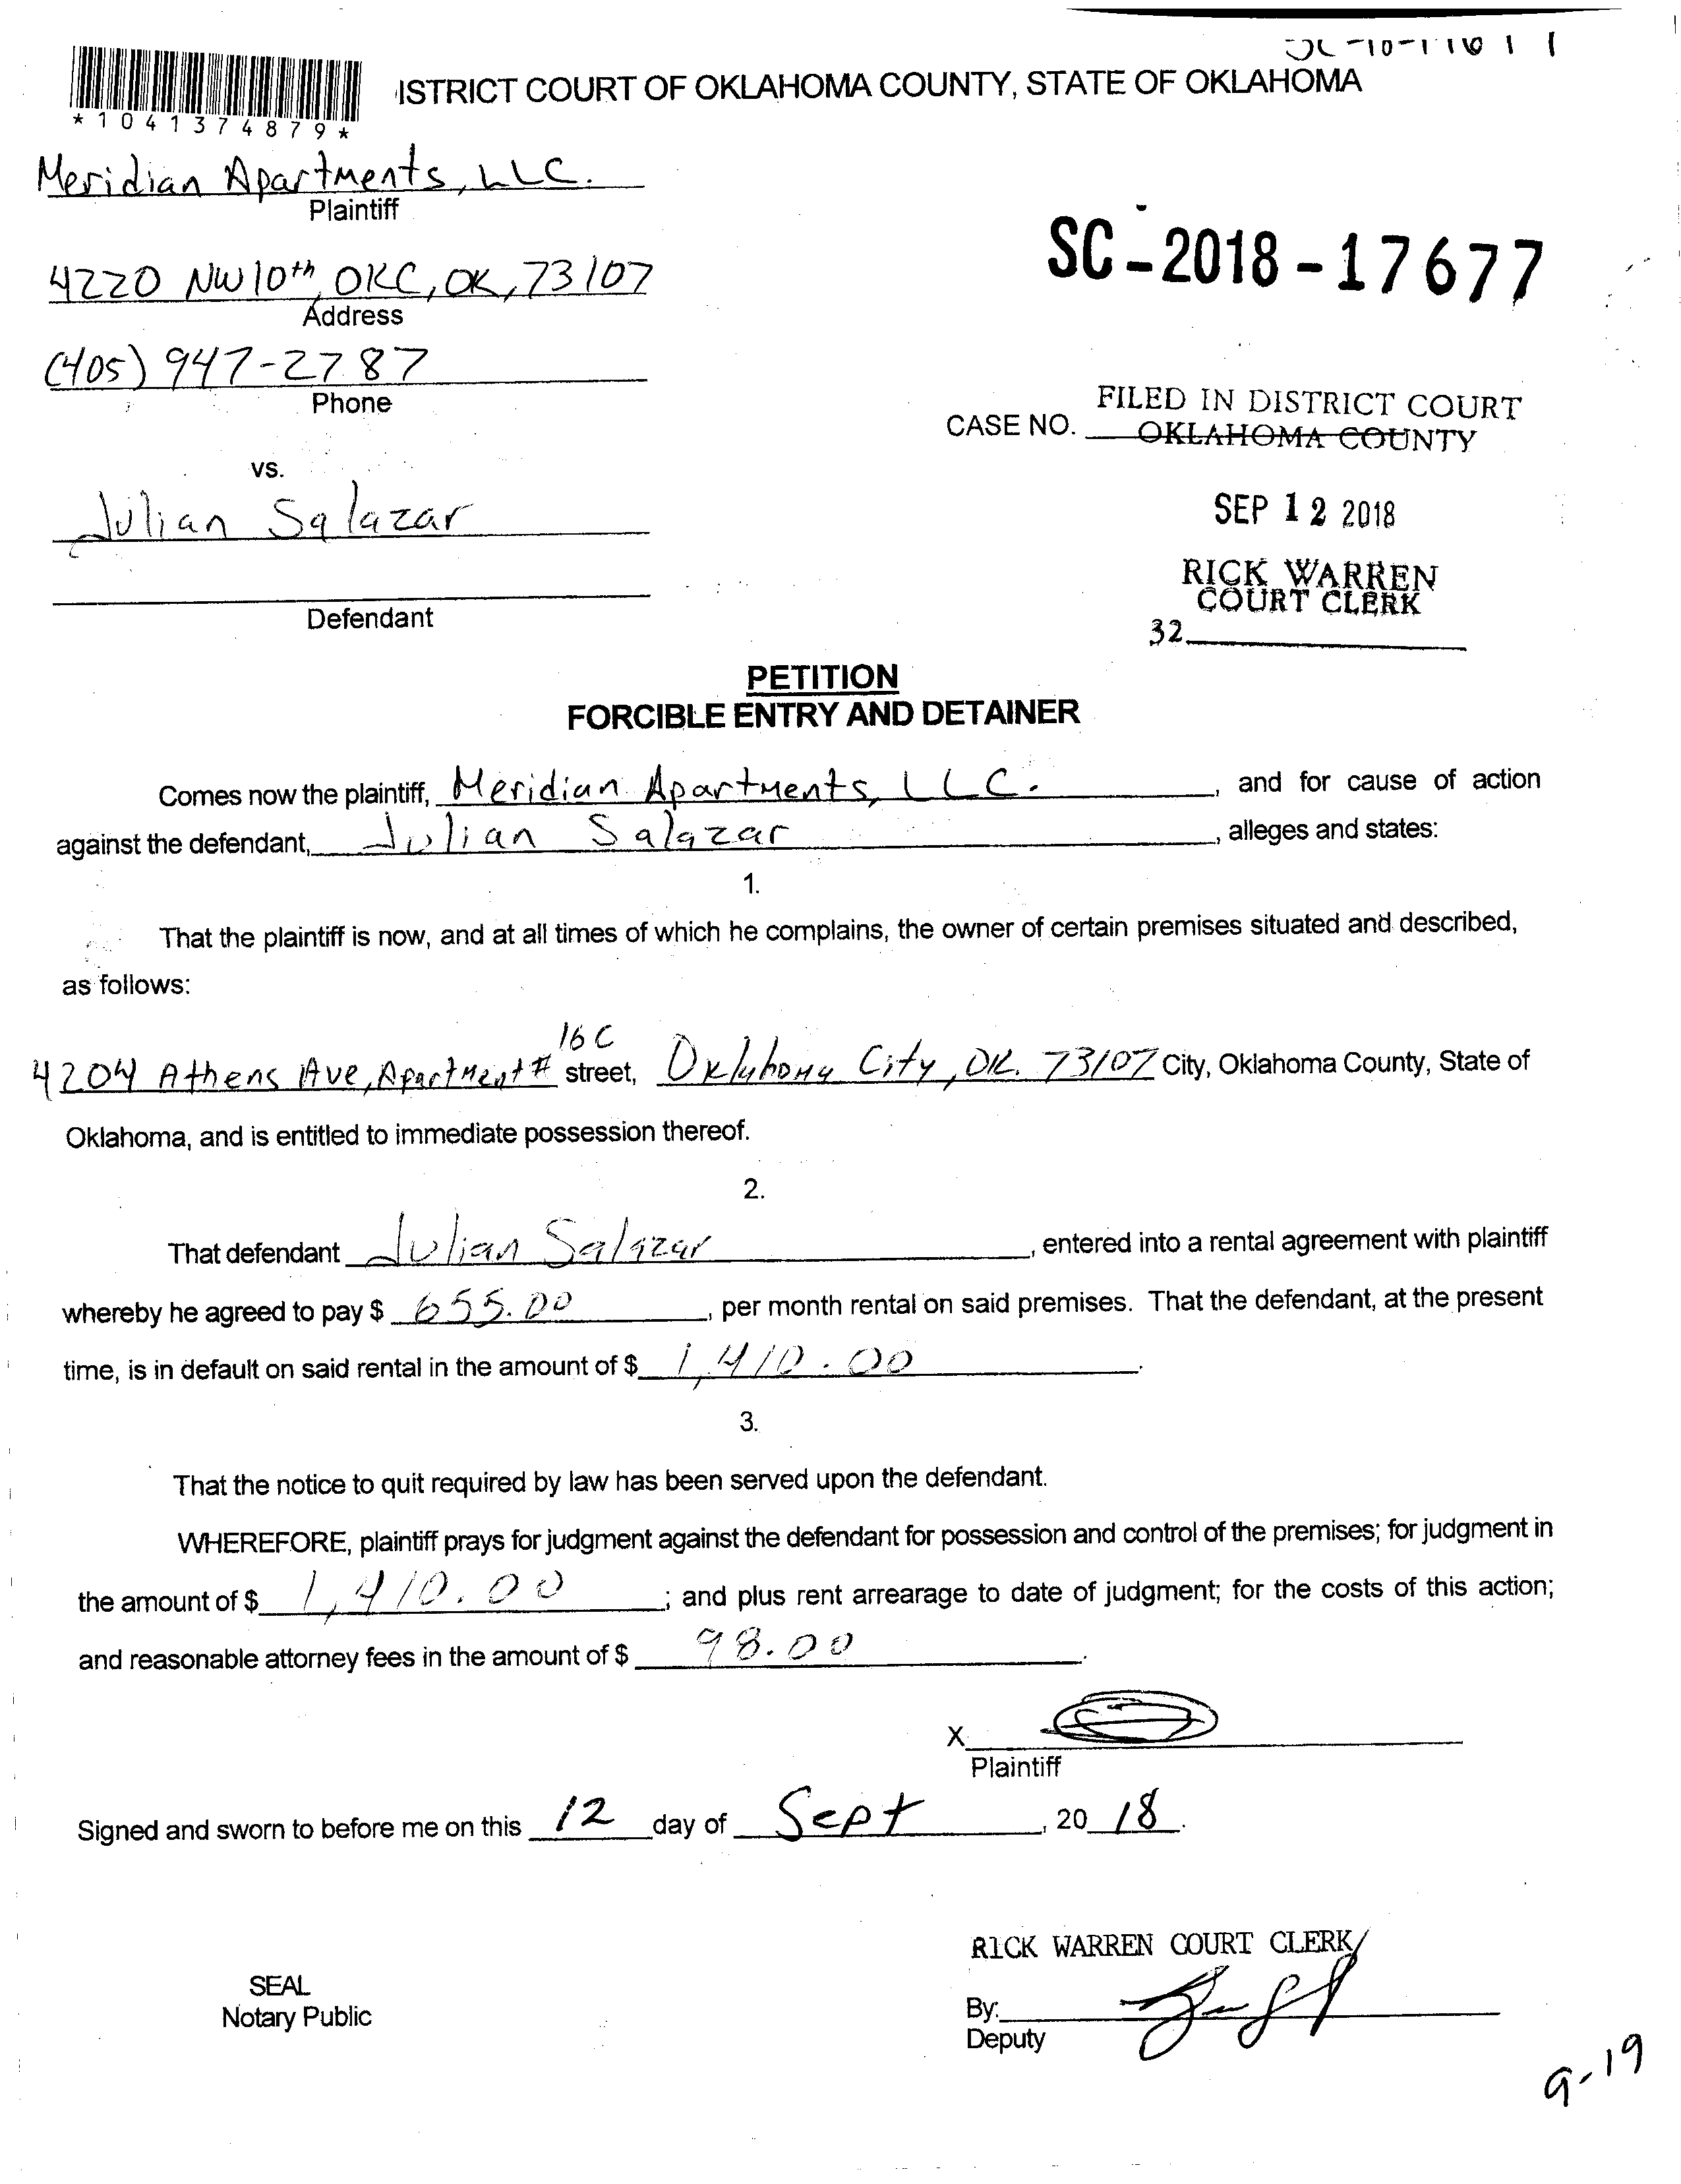 ISTRICT COURT OF OKLAHOMA COUNTY, STATE OF OKLAHOMA
*1041374879*
Meridian Apartments, LLC.
Plaintiff
SC-2018-17677
4220 NW 10th, OKC, OK, 73107
Address
(405) 947-2787
Phone
FILED IN DISTRICT COURT
CASE NO. OKLAHOMA COUNTY
vs.
Julian Salazar
SEP 12 2018
RICK WARREN
COURT CLERK
Defendant
32
PETITION
FORCIBLE ENTRY AND DETAINER
Comes now the plaintiff, Meridian Apartments, LLC. , and for cause of action
against the defendant, Julian Salazar , alleges and states:
1.
That the plaintiff is now, and at all times of which he complains, the owner of certain premises situated and described,
as follows:
16C
4204 Athens Ave, Apartment # street, Oklahoma City, OK. 73107 City, Oklahoma County, State of
Oklahoma, and is entitled to immediate possession thereof.
2.
That defendant Julian Salazar , entered into a rental agreement with plaintiff
whereby he agreed to pay $ 655.00 , per month rental on said premises. That the defendant, at the present
time, is in default on said rental in the amount of $ 1,410.00 .
3.
That the notice to quit required by law has been served upon the defendant.
WHEREFORE, plaintiff prays for judgment against the defendant for possession and control of the premises; for judgment in
the amount of $ 1,410.00 ; and plus rent arrearage to date of judgment; for the costs of this action;
and reasonable attorney fees in the amount of $ 98.00 .
X
Plaintiff
Signed and sworn to before me on this 12 day of Sept , 20 18 .
RICK WARREN COURT CLERK
SEAL
Notary Public
By:
Deputy
9-19